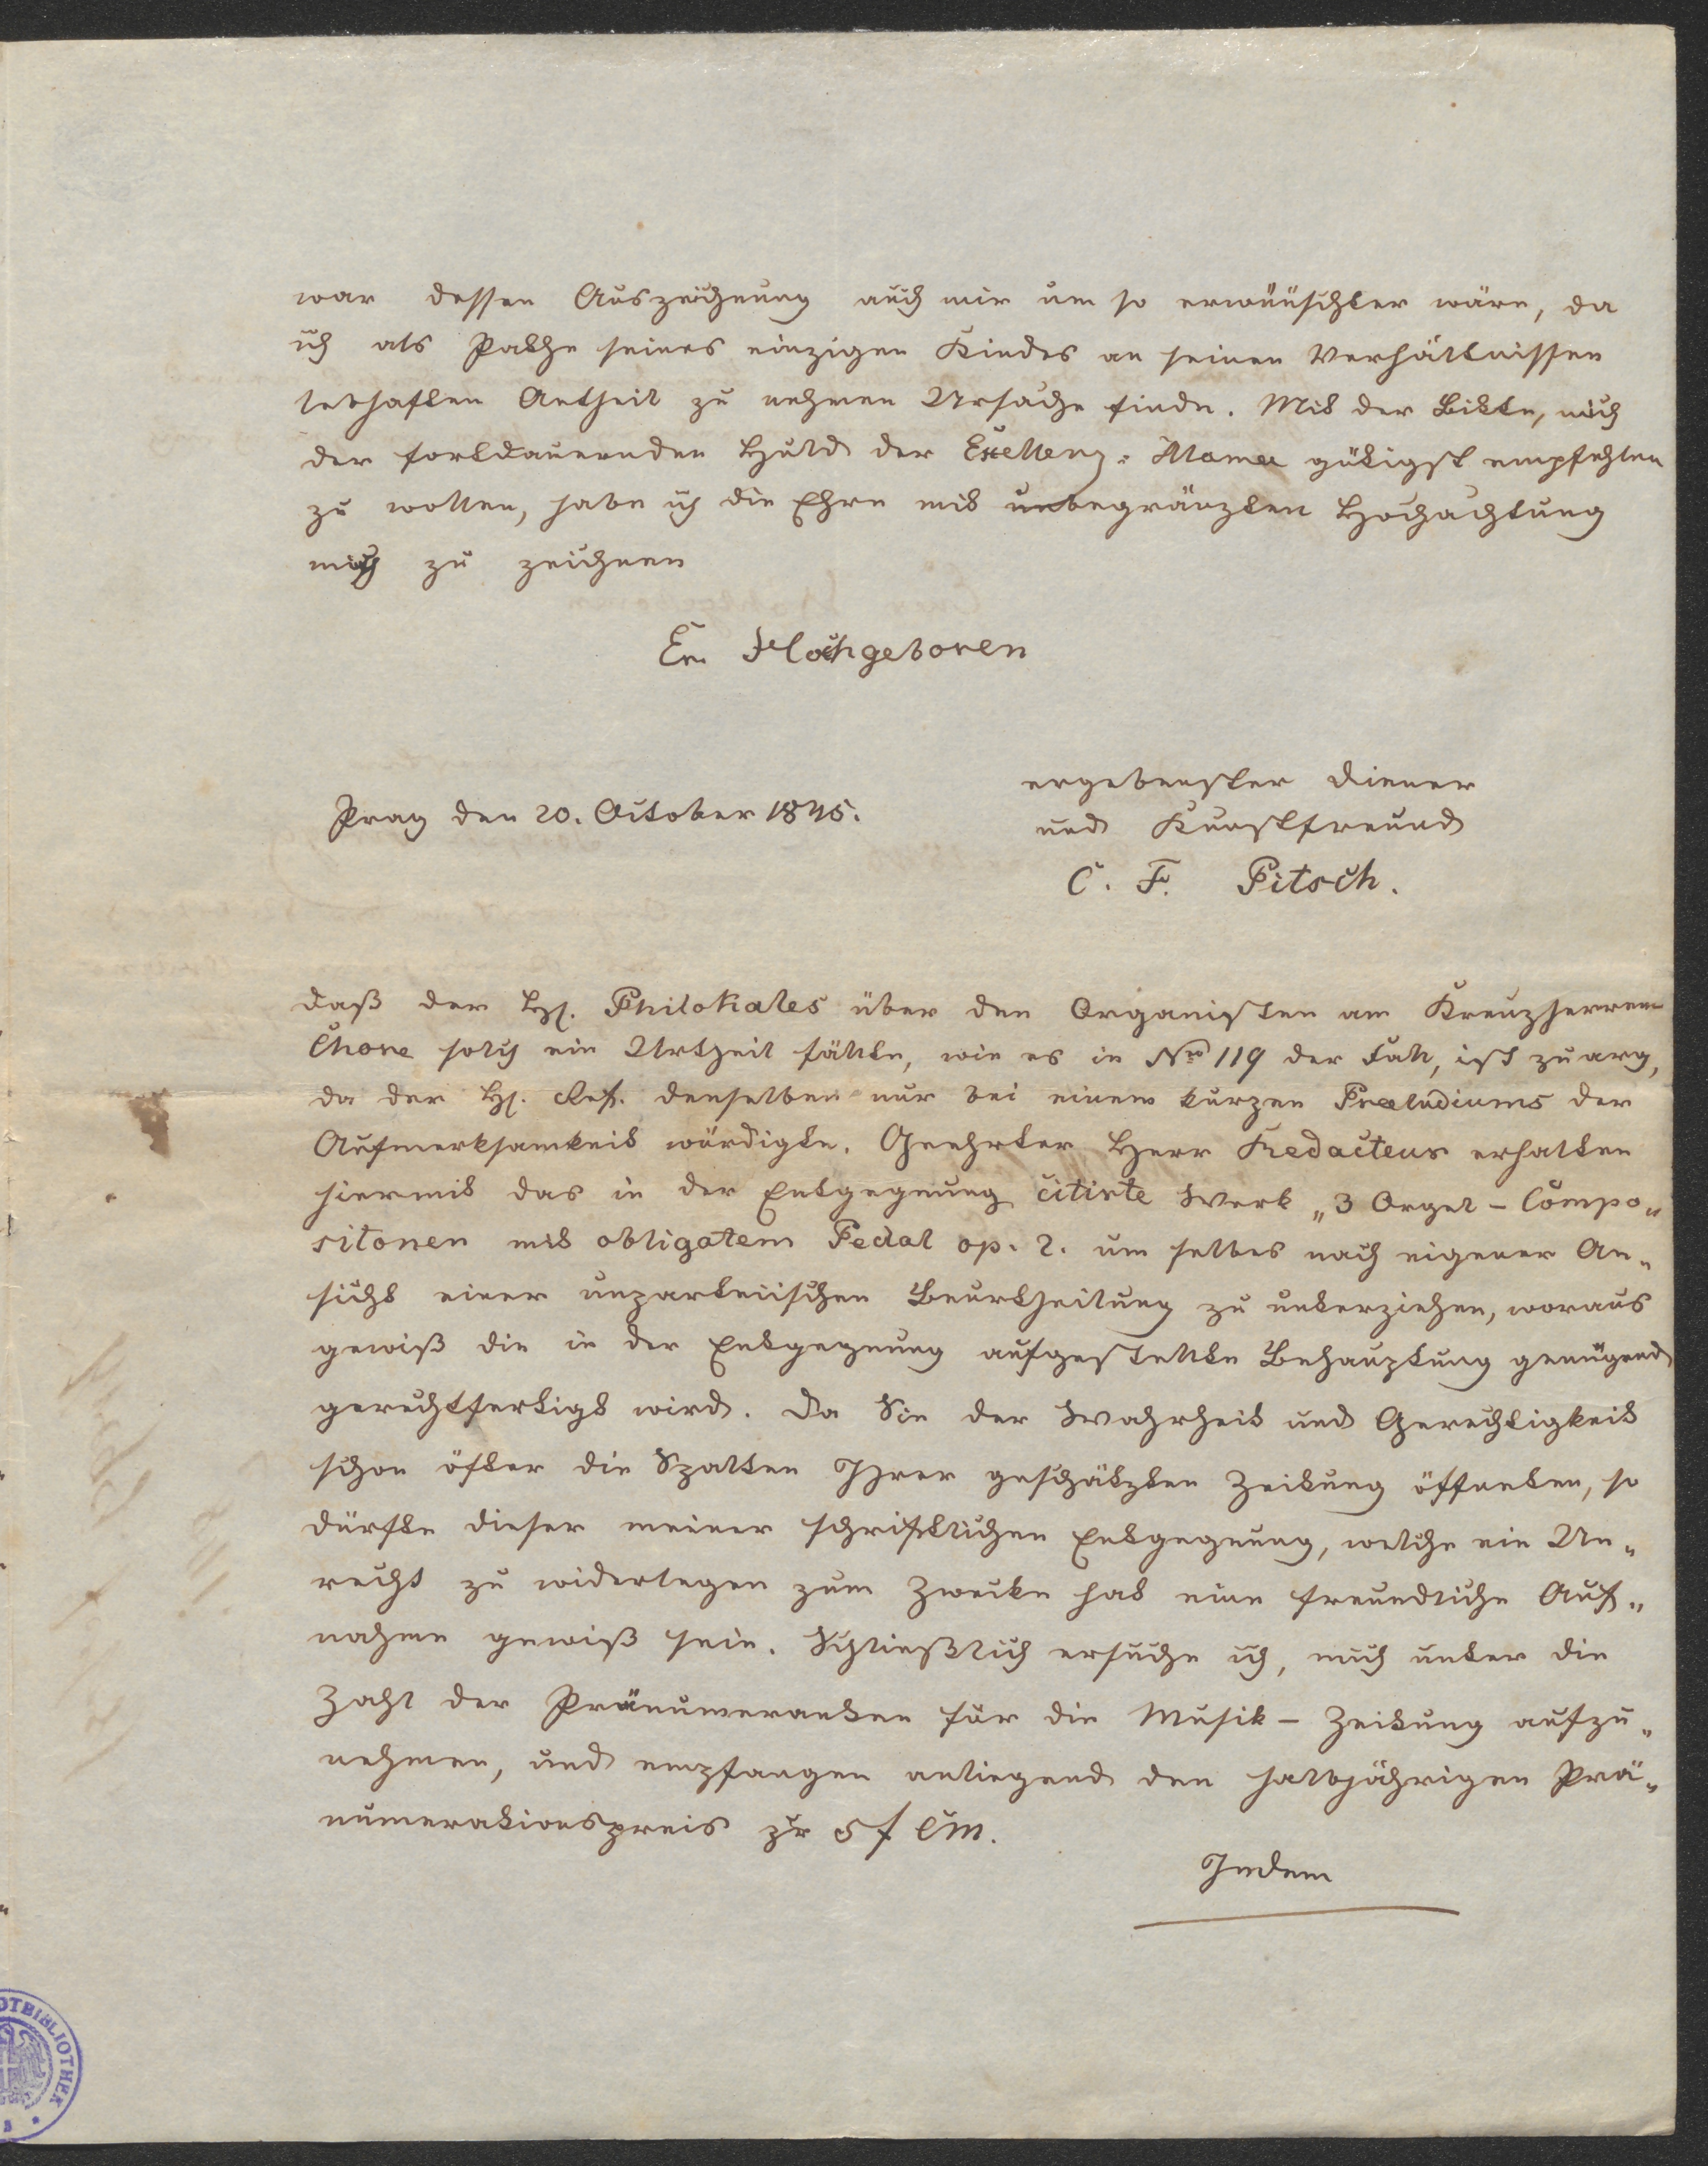 war dessen Auszeichnung auch mir um so erwünschter wäre, da
ich als Pathe seines einzigen Kindes an seinen Verhältnissen
lebhaften Antheil zu nehmen Ursache finde. Mit der Bitte, mich
der fortdauernden Huld der Exellenz-Mama gütigst empfehlen
zu wollen, habe ich die Ehre mit unbegränzten Hochachtung
mich zu zeichnen
Er. Hochgeboren
ergebenster Diener
Prag den 20. October 1845.
und Kunstfreund
C. F. Pitsch.
Daß der H. Philokales über den Organisten am Kreuzherren
Chore solch ein Urtheil fällte, wie es in Nro 119 der Fall, ist zu arg,
da der H. Ref. denselben nur bei einem kurzen Praeludiums der
Aufmerksamkeit würdigte. Geehrter Herr Redacteur erhalten
hiermit das in der Entgegnung citirte Werk „3 Orgel-Compo„
sitonen mit obligatem Pedal op. 2. um selbes nach eigener An„
sicht einer unparteiischen Beurtheilung zu unterziehen, woraus
gewiß die in der Entgegnung aufgestellte Behauptung genügend
gerechtfertigt wird. Da Sie der Wahrheit und Gerechtigkeit
schon öfter die Spalten Ihrer geschätzten Zeitung öffneten, so
dürfte dieser meiner schriftlichen Entgegnung, welche ein Un„
recht zu widerlegen zum Zwecke hat eine freundliche Auf„
nahme gewiß sein. Schließlich ersuche ich, mich unter die
Zahl der Pränumeranten für die Musik-Zeitung aufzu„
nehmen, und empfangen anliegend den halbjährigen Prä„
numerationspreis zu 5 f CM.
Indem